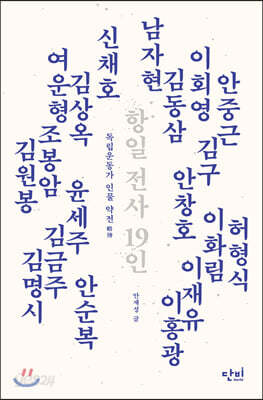 안중근
이회영
김구
남자현
김동삼
안창호
허형식
이화림
이재유
이홍광
항일 전사 19인
독립운동가 인물 약전 略傳
안재성 글
신채호
김상옥
여운형
조봉암
김원봉
윤세주
안순복
김금주
김명시
단비
yes24